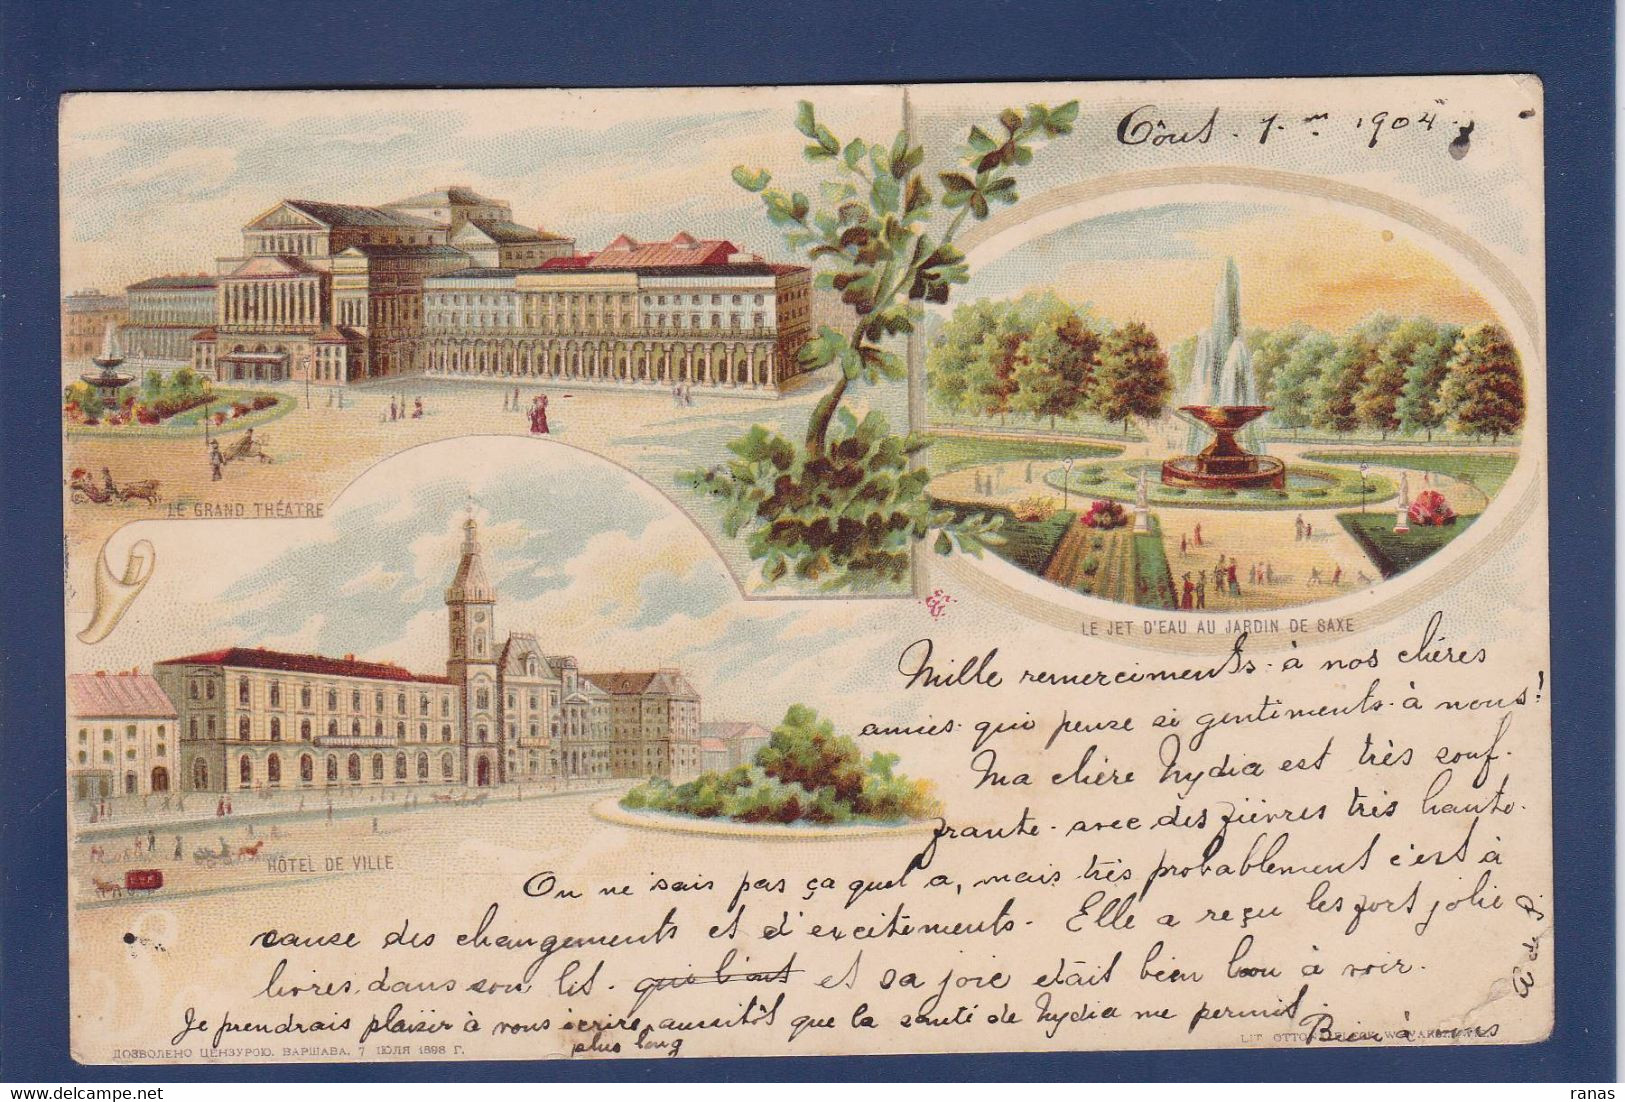 Août. 1. 1904.
LE GRAND THÉATRE
LE JET D'EAU AU JARDIN DE SAXE
HÔTEL DE VILLE
Mille remerciments à nos chères
amies qui pense si gentiments à nous!
Ma chère Nydia est très souf-
frante - avec des fièvres très haute.
On ne sais pas ça quel a, mais très probablement c'est à
cause des changements et d'excitements. Elle a reçu les fort jolie
livres dans son lit. qui l'ont et sa joie etait bien bon à voir.
Je prendrais plaisir à vous écrire aussitôt que la santé de Nydia me permit.
plus long
Bien à vous
ДОЗВОЛЕНО ЦЕНЗУРОЮ. ВАРШАВА, 7 ІЮЛЯ 1898 Г.
LIT. OTTO
ranas